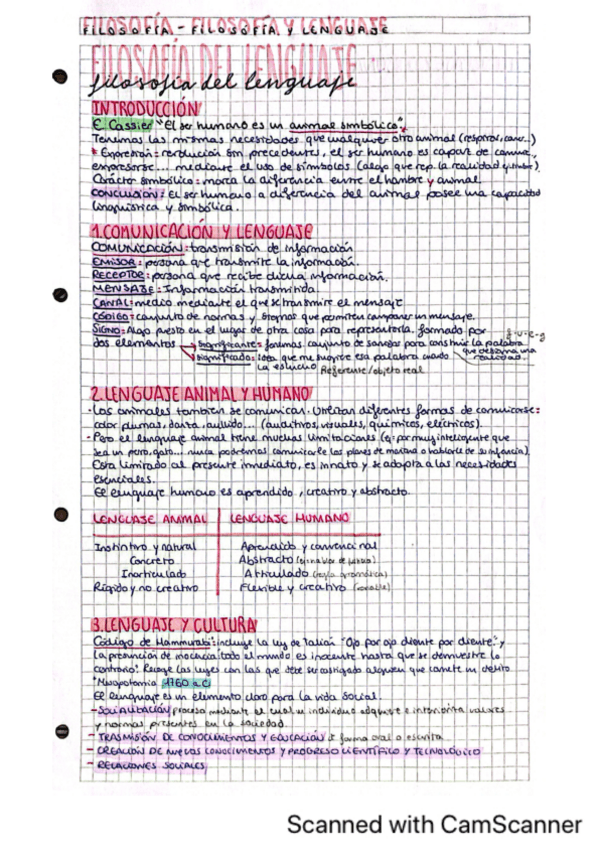 FILOSOFÍA - FILOSOFÍA Y LENGUAJE
FILOSOFÍA DEL LENGUAJE
filosofía del lenguaje
INTRODUCCIÓN
E. Cassier "El ser humano es un animal simbólico".
Tenemos las mismas necesidades que cualquier otro animal (respirar, comer...)
* Expresión: revolución sin precedentes, el ser humano es capaz de comunic.,
expresarse... mediante el uso de símbolos (algo que rep. la realidad
Carácter simbólico: marca la diferencia entre el hombre y animal.
CONCLUSIÓN: El ser humano a diferencia del animal posee una capacidad
lingüística y simbólica.
1.COMUNICACIÓN Y LENGUAJE
COMUNICACIÓN: transmisión de información
EMISOR: persona que transmite la información.
RECEPTOR: persona que recibe dicha información.
MENSAJE: Información transmitida.
CANAL: medio mediante el que se transmite el mensaje
CÓDIGO: conjunto de normas y signos que permiten componer un mensaje.
SIGNO: Algo puesto en el lugar de otra cosa para representarla. formado por
dos elementos
Significante: fonemas. conjunto de sonidos para construir la palabra
que designa una realidad.
Significado: idea que me sugiere esa palabra cuando
la escucho
Referente/objeto real
2.LENGUAJE ANIMAL Y HUMANO
·Los animales también se comunican. Utilizan diferentes formas de comunicarse:
color plumas, danza, aullido... (auditivos, visuales, químicos, eléctricos).
·Pero el lenguaje animal tiene muchas limitaciones (ej: por muy inteligente que
sea un perro, gato... nunca podremos comunicarle los planes de mañana o hablarle de su infancia).
Esta limitado al presente inmediato, es innato y se adapta a las necesidades
esenciales.
El lenguaje humano es aprendido, creativo y abstracto.
LENGUAJE ANIMAL | LENGUAJE HUMANO
Instintivo y natural | Aprendido y convencional
Concreto | Abstracto
Inarticulado | Articulado (regla gramatical)
Rígido y no creativo | Flexible y creativo (variable)
3.LENGUAJE Y CULTURA
Código de Hammurabi: incluye la ley de Talión "Ojo por ojo diente por diente." y
la presunción de inocencia: todo el mundo es inocente hasta que se demuestre lo
contrario. Recoge las leyes con las que debe ser castigado alguien que comete un delito.
*Mesopotamia 1760 a.C
El lenguaje es un elemento claro para la vida social.
-SOCIALIZACIÓN: proceso mediante el cual un individuo adquiere e interioriza valores
y normas presentes en la sociedad.
- TRASMISIÓN DE CONOCIMIENTOS Y EDUCACIÓN: de forma oral o escrita.
- CREACIÓN DE NUEVOS CONOCIMIENTOS Y PROGRESO CIENTÍFICO Y TECNOLÓGICO
- RELACIONES SOCIALES
Scanned with CamScanner